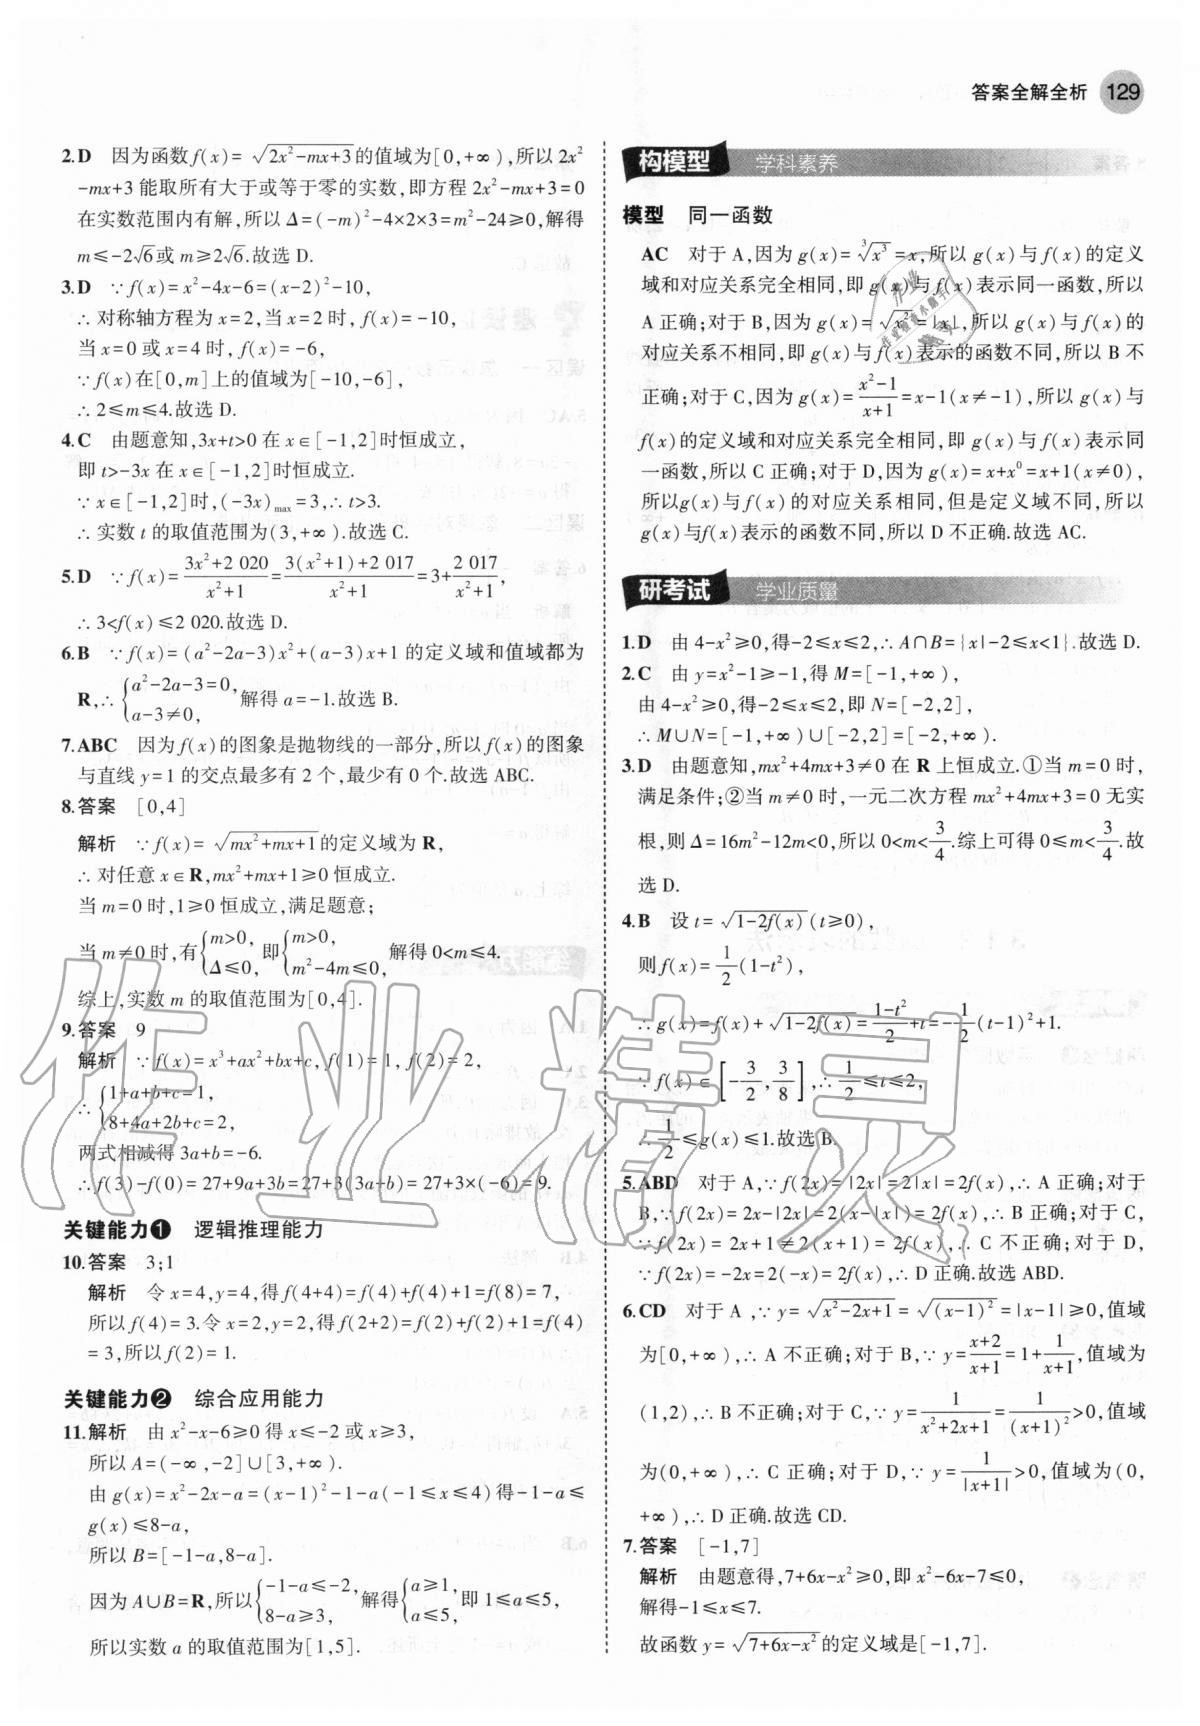 答案全解全析 129
2.D 因为函数f(x)=√(2x²-mx+3)的值域为[0,+∞),所以2x²
-mx+3能取所有大于或等于零的实数,即方程2x²-mx+3=0
在实数范围内有解,所以Δ=(-m)²-4×2×3=m²-24≥0,解得
m≤-2√6或m≥2√6.故选D.
3.D ∵f(x)=x²-4x-6=(x-2)²-10,
∴对称轴方程为x=2,当x=2时,f(x)=-10,
当x=0或x=4时,f(x)=-6,
∵f(x)在[0,m]上的值域为[-10,-6],
∴2≤m≤4.故选D.
4.C 由题意知,3x+t>0在x∈[-1,2]时恒成立,
即t>-3x在x∈[-1,2]时恒成立.
∵x∈[-1,2]时,(-3x)max=3,∴t>3.
∴实数t的取值范围为(3,+∞).故选C.
5.D ∵f(x)=(3x²+2 020)/(x²+1)=(3(x²+1)+2 017)/(x²+1)=3+2 017/(x²+1),
∴3<f(x)≤2 020.故选D.
6.B ∵f(x)=(a²-2a-3)x²+(a-3)x+1的定义域和值域都为
R,∴{a²-2a-3=0, a-3≠0, 解得a=-1.故选B.
7.ABC 因为f(x)的图象是抛物线的一部分,所以f(x)的图象
与直线y=1的交点最多有2个,最少有0个.故选ABC.
8.答案 [0,4]
解析 ∵f(x)=√(mx²+mx+1)的定义域为R,
∴对任意x∈R,mx²+mx+1≥0恒成立.
当m=0时,1≥0恒成立,满足题意;
当m≠0时,有{m>0, Δ≤0, 即{m>0, m²-4m≤0, 解得0<m≤4.
综上,实数m的取值范围为[0,4].
9.答案 9
解析 ∵f(x)=x³+ax²+bx+c,f(1)=1,f(2)=2,
∴{1+a+b+c=1, 8+4a+2b+c=2,
两式相减得3a+b=-6.
∴f(3)-f(0)=27+9a+3b=27+3(3a+b)=27+3×(-6)=9.
关键能力❶ 逻辑推理能力
10.答案 3;1
解析 令x=4,y=4,得f(4+4)=f(4)+f(4)+1=f(8)=7,
所以f(4)=3.令x=2,y=2,得f(2+2)=f(2)+f(2)+1=f(4)
=3,所以f(2)=1.
关键能力❷ 综合应用能力
11.解析 由x²-x-6≥0得x≤-2或x≥3,
所以A=(-∞,-2]∪[3,+∞).
由g(x)=x²-2x-a=(x-1)²-1-a(-1≤x≤4)得-1-a≤
g(x)≤8-a,
所以B=[-1-a,8-a].
因为A∪B=R,所以{-1-a≤-2, 8-a≥3, 解得{a≥1, a≤5, 即1≤a≤5,
所以实数a的取值范围为[1,5].
构模型 学科素养
模型 同一函数
AC 对于A,因为g(x)=∛(x³)=x,所以g(x)与f(x)的定义
域和对应关系完全相同,即g(x)与f(x)表示同一函数,所以
A正确;对于B,因为g(x)=√(x²)=|x|,所以g(x)与f(x)的
对应关系不相同,即g(x)与f(x)表示的函数不同,所以B不
正确;对于C,因为g(x)=(x²-1)/(x+1)=x-1(x≠-1),所以g(x)与
f(x)的定义域和对应关系完全相同,即g(x)与f(x)表示同
一函数,所以C正确;对于D,因为g(x)=x+x⁰=x+1(x≠0),
所以g(x)与f(x)的对应关系相同,但是定义域不同,所以
g(x)与f(x)表示的函数不同,所以D不正确.故选AC.
研考试 学业质量
1.D 由4-x²≥0,得-2≤x≤2,∴A∩B={x|-2≤x<1}.故选D.
2.C 由y=x²-1≥-1,得M=[-1,+∞),
由4-x²≥0,得-2≤x≤2,即N=[-2,2],
∴M∪N=[-1,+∞)∪[-2,2]=[-2,+∞).
3.D 由题意知,mx²+4mx+3≠0在R上恒成立.①当m=0时,
满足条件;②当m≠0时,一元二次方程mx²+4mx+3=0无实
根,则Δ=16m²-12m<0,所以0<m<3/4.综上可得0≤m<3/4.故
选D.
4.B 设t=√(1-2f(x))(t≥0),
则f(x)=1/2(1-t²),
∴g(x)=f(x)+√(1-2f(x))=(1-t²)/2+t=-1/2(t-1)²+1.
∵f(x)∈[-3/2,3/8],∴1/2≤t≤2,
∴1/2≤g(x)≤1.故选B.
5.ABD 对于A,∵f(2x)=|2x|=2|x|=2f(x),∴A正确;对于
B,∵f(2x)=2x-|2x|=2(x-|x|)=2f(x),∴B正确;对于C,
∵f(2x)=2x+1≠2(x+1)=2f(x),∴C不正确;对于D,
∵f(2x)=-2x=2(-x)=2f(x),∴D正确.故选ABD.
6.CD 对于A,∵y=√(x²-2x+1)=√((x-1)²)=|x-1|≥0,值域
为[0,+∞),∴A不正确;对于B,∵y=(x+2)/(x+1)=1+1/(x+1),值域为
(1,2),∴B不正确;对于C,∵y=1/(x²+2x+1)=1/(x+1)²>0,值域
为(0,+∞),∴C正确;对于D,∵y=1/|x+1|>0,值域为(0,
+∞),∴D正确.故选CD.
7.答案 [-1,7]
解析 由题意得,7+6x-x²≥0,即x²-6x-7≤0,
解得-1≤x≤7.
故函数y=√(7+6x-x²)的定义域是[-1,7].
作业精灵